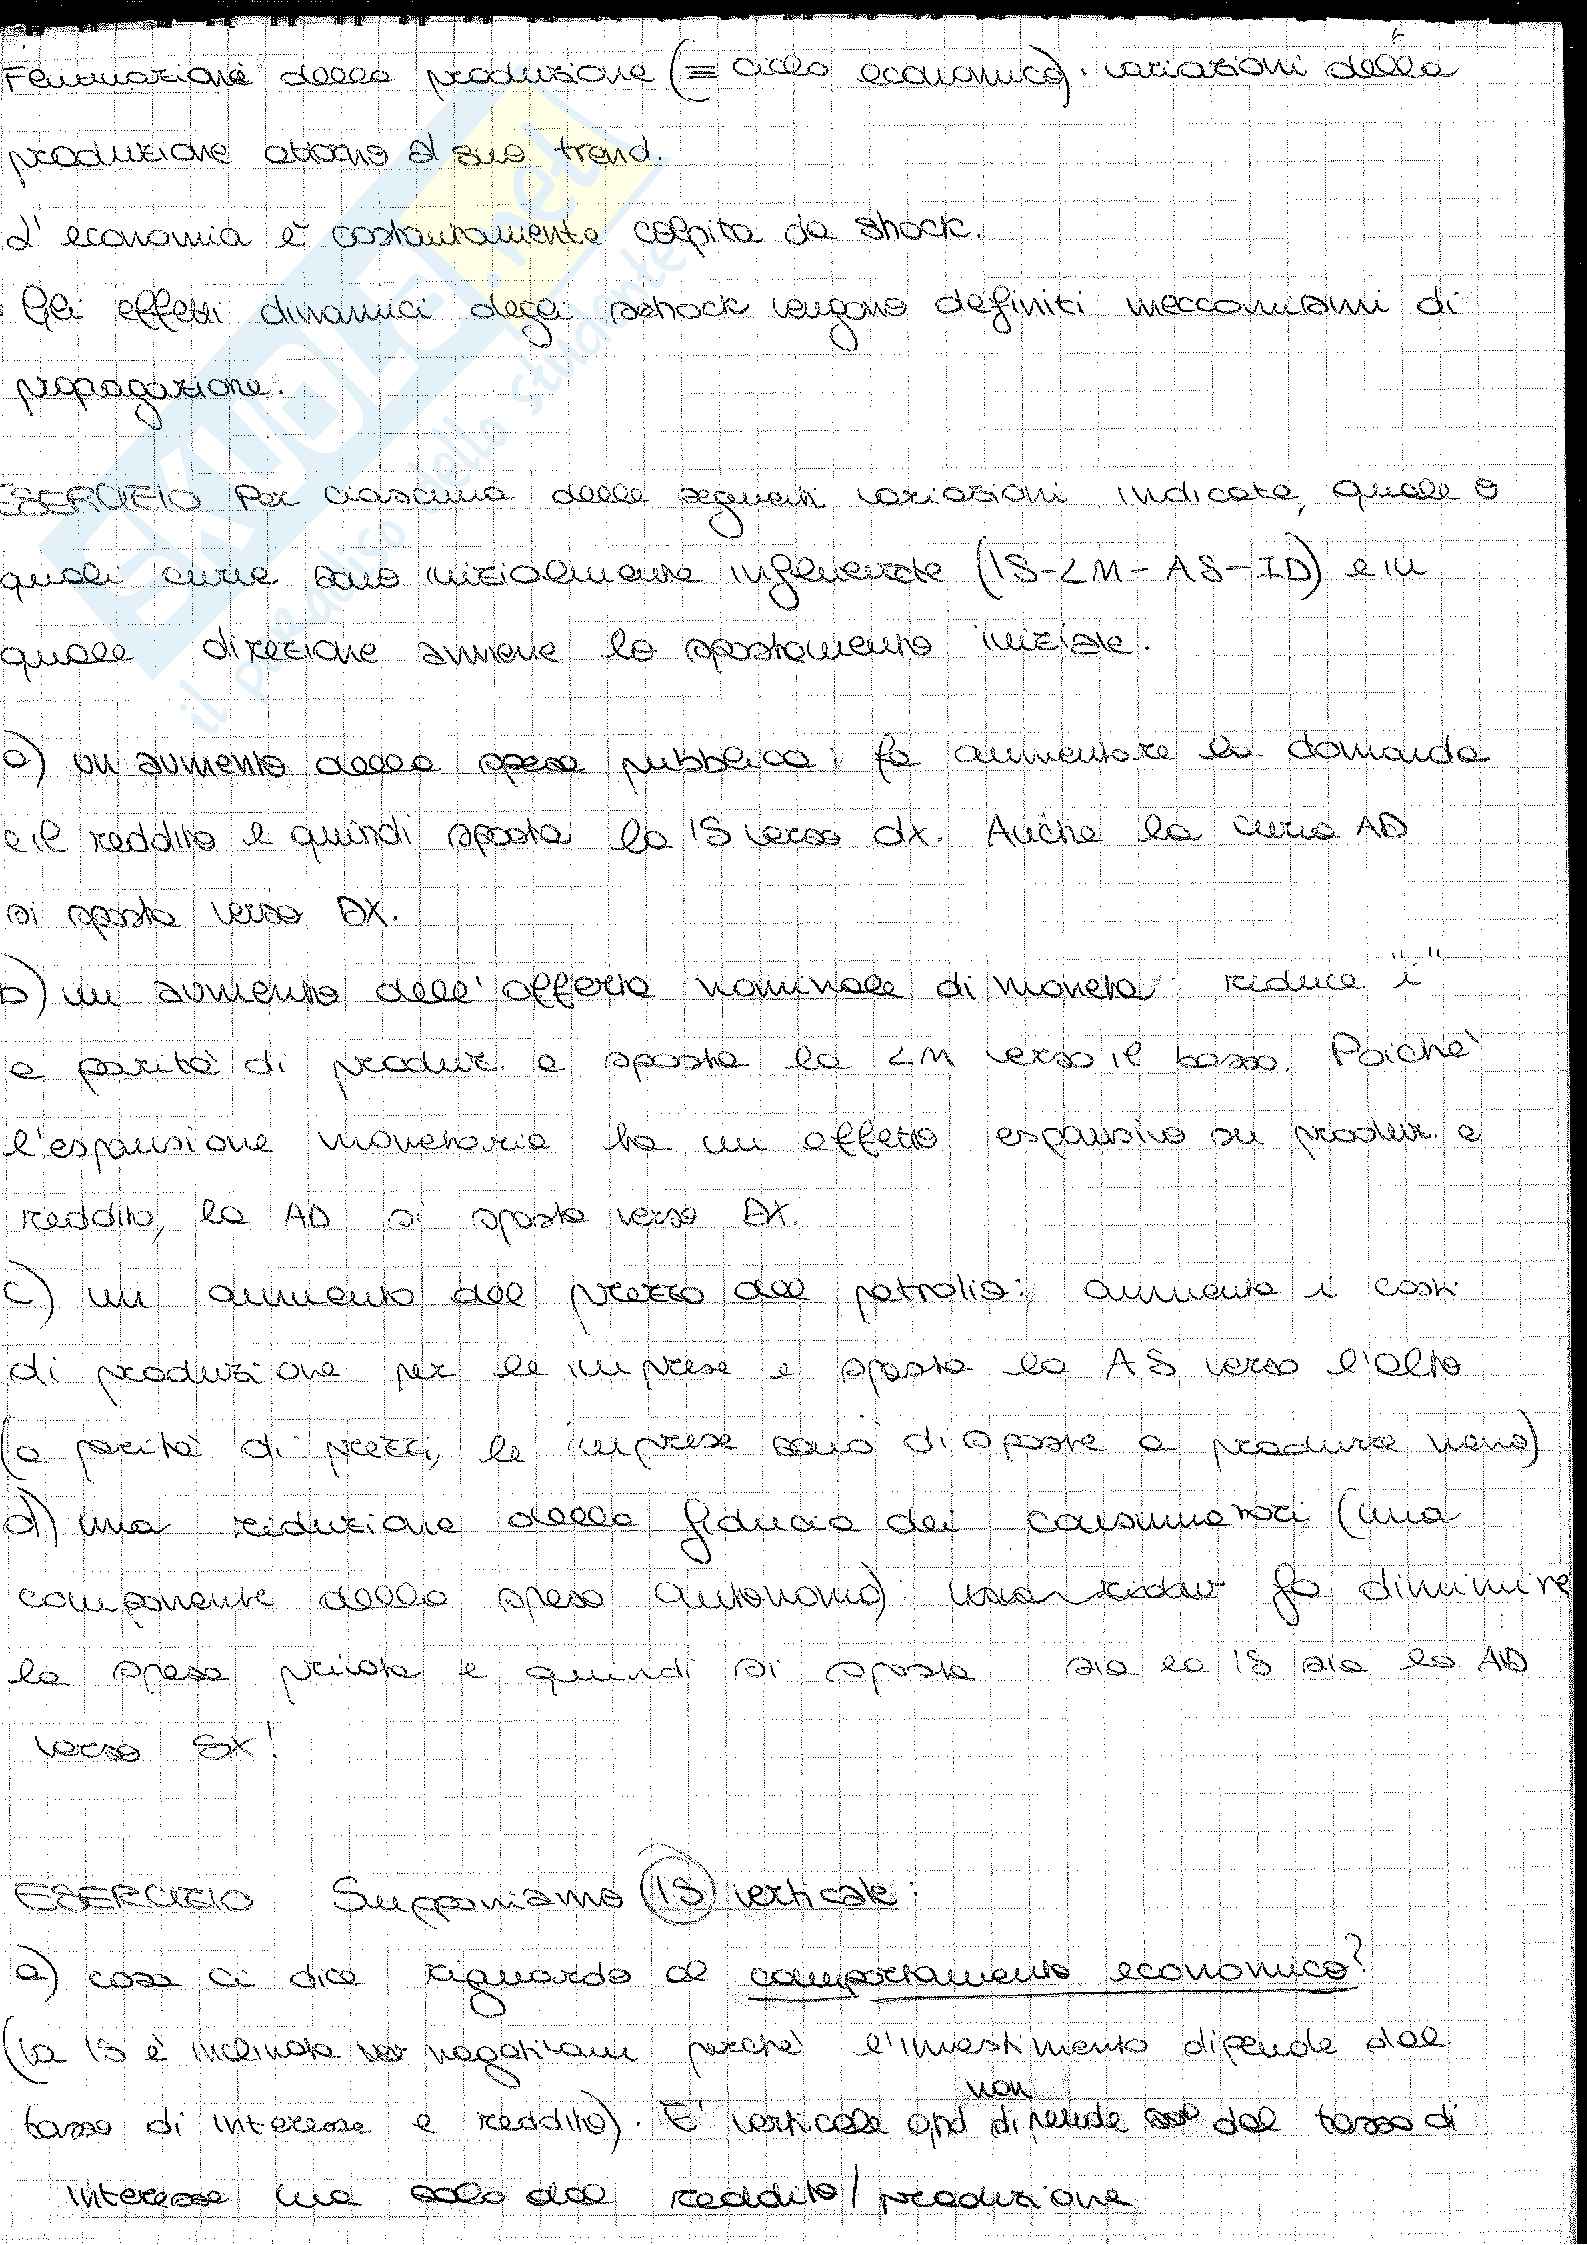 Fluttuazione della produzione (= ciclo economico): variazioni della
produzione attorno al suo trend.
L'economia è costantemente colpita da shock.
Gli effetti dinamici degli shock vengono definiti meccanismi di
propagazione.
ESERCIZIO Per ciascuna delle seguenti variazioni indicate, quale o
quali curve sono inizialmente influenzate (IS-LM-AS-ID) e in
quale direzione avviene lo spostamento iniziale.
a) un aumento della spesa pubblica: fa aumentare la domanda
e il reddito e quindi sposta la IS verso dx. Anche la curva AD
si sposta verso DX.
b) un aumento dell'offerta nominale di moneta: riduce "i"
a parità di produz. e sposta la LM verso il basso. Poichè
l'espansione monetaria ha un effetto espansivo su produz. e
reddito, la AD si sposta verso DX.
c) un aumento del prezzo del petrolio: aumenta i costi
di produzione per le imprese e sposta la AS verso l'alto
(a parità di prezzi, le imprese sono disposte a produrre meno)
d) una riduzione della fiducia dei consumatori (una
componente della spesa autonoma): fa diminuire
la spesa privata e quindi si sposta sia la IS sia la AD
verso SX!
ESERCIZIO Supponiamo IS verticale:
a) cosa ci dice riguardo al comportamento economico?
(la IS è inclinata negativam perchè l'investimento dipende dal
tasso di interesse e reddito). E' verticale qnd non dipende dal tasso di
interesse ma solo dal reddito/produzione
il punto di ll'o studente